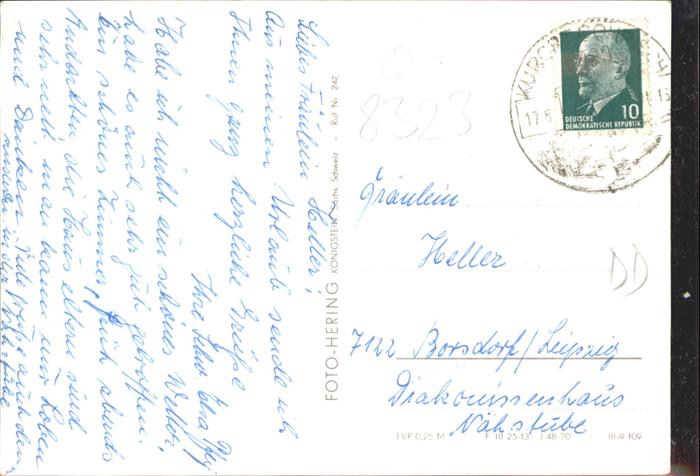 Liebes Fräulein Heller!
Aus meinem Urlaub sende ich
Ihnen ganz herzliche Grüße
Ihre
Habe ich nicht ein schönes Wetter,
habe es auch sehr gut getroffen.
Ein schönes Zimmer, früh abends
Andachten, die Hauseltern sind
sehr nett, man kann nur Loben
und Danken. Viele Grüße auch den
anderen in der Nähstube
FOTO-HERING KÖNIGSTEIN Sächs. Schweiz - Ruf Nr. 242
8323
KURORT
17.5
DEUTSCHE
DEMOKRATISCHE REPUBLIK
10
Fräulein
Heller
DD
7122 Borsdorf/Leipzig
Diakonissenhaus
Nähstube
EVP 0,25 M F III 25-13 J 48-70 III-9-109